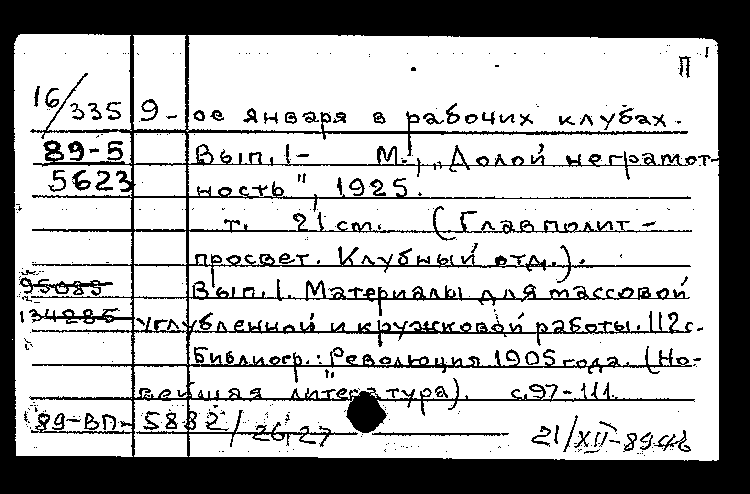 П
16/335 9-ое января в рабочих клубах.
89-5 Вып.1- М., „Долой неграмот-
5623 ность", 1925.
т. 21 см. (Главполит-
просвет. Клубный отд.).
95089 Вып.1. Материалы для массовой
134285 углубленной и кружковой работы. 112с.
Библиогр.: Революция 1905 года. (Но-
вейшая литература). с.97-111.
89-ВП- 5882/26,27 21/XII-89